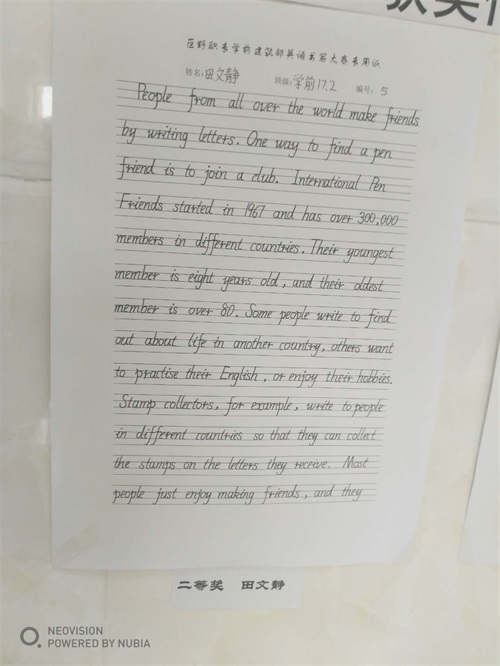 巨野职专学前建筑部英语书写大赛专用纸
姓名:田文静 班级:学前17.2 编号:5
People from all over the world make friends
by writing letters. One way to find a pen
friend is to join a club. International Pen
Friends started in 1967 and has over 300,000
members in different countries. Their youngest
member is eight years old, and their oldest
member is over 80. Some people write to find
out about life in another country, others want
to practise their English, or enjoy their hobbies.
Stamp collectors, for example, write to people
in different countries so that they can collect
the stamps on the letters they receive. Most
people just enjoy making friends, and they
二等奖 田文静
NEOVISION
POWERED BY NUBIA